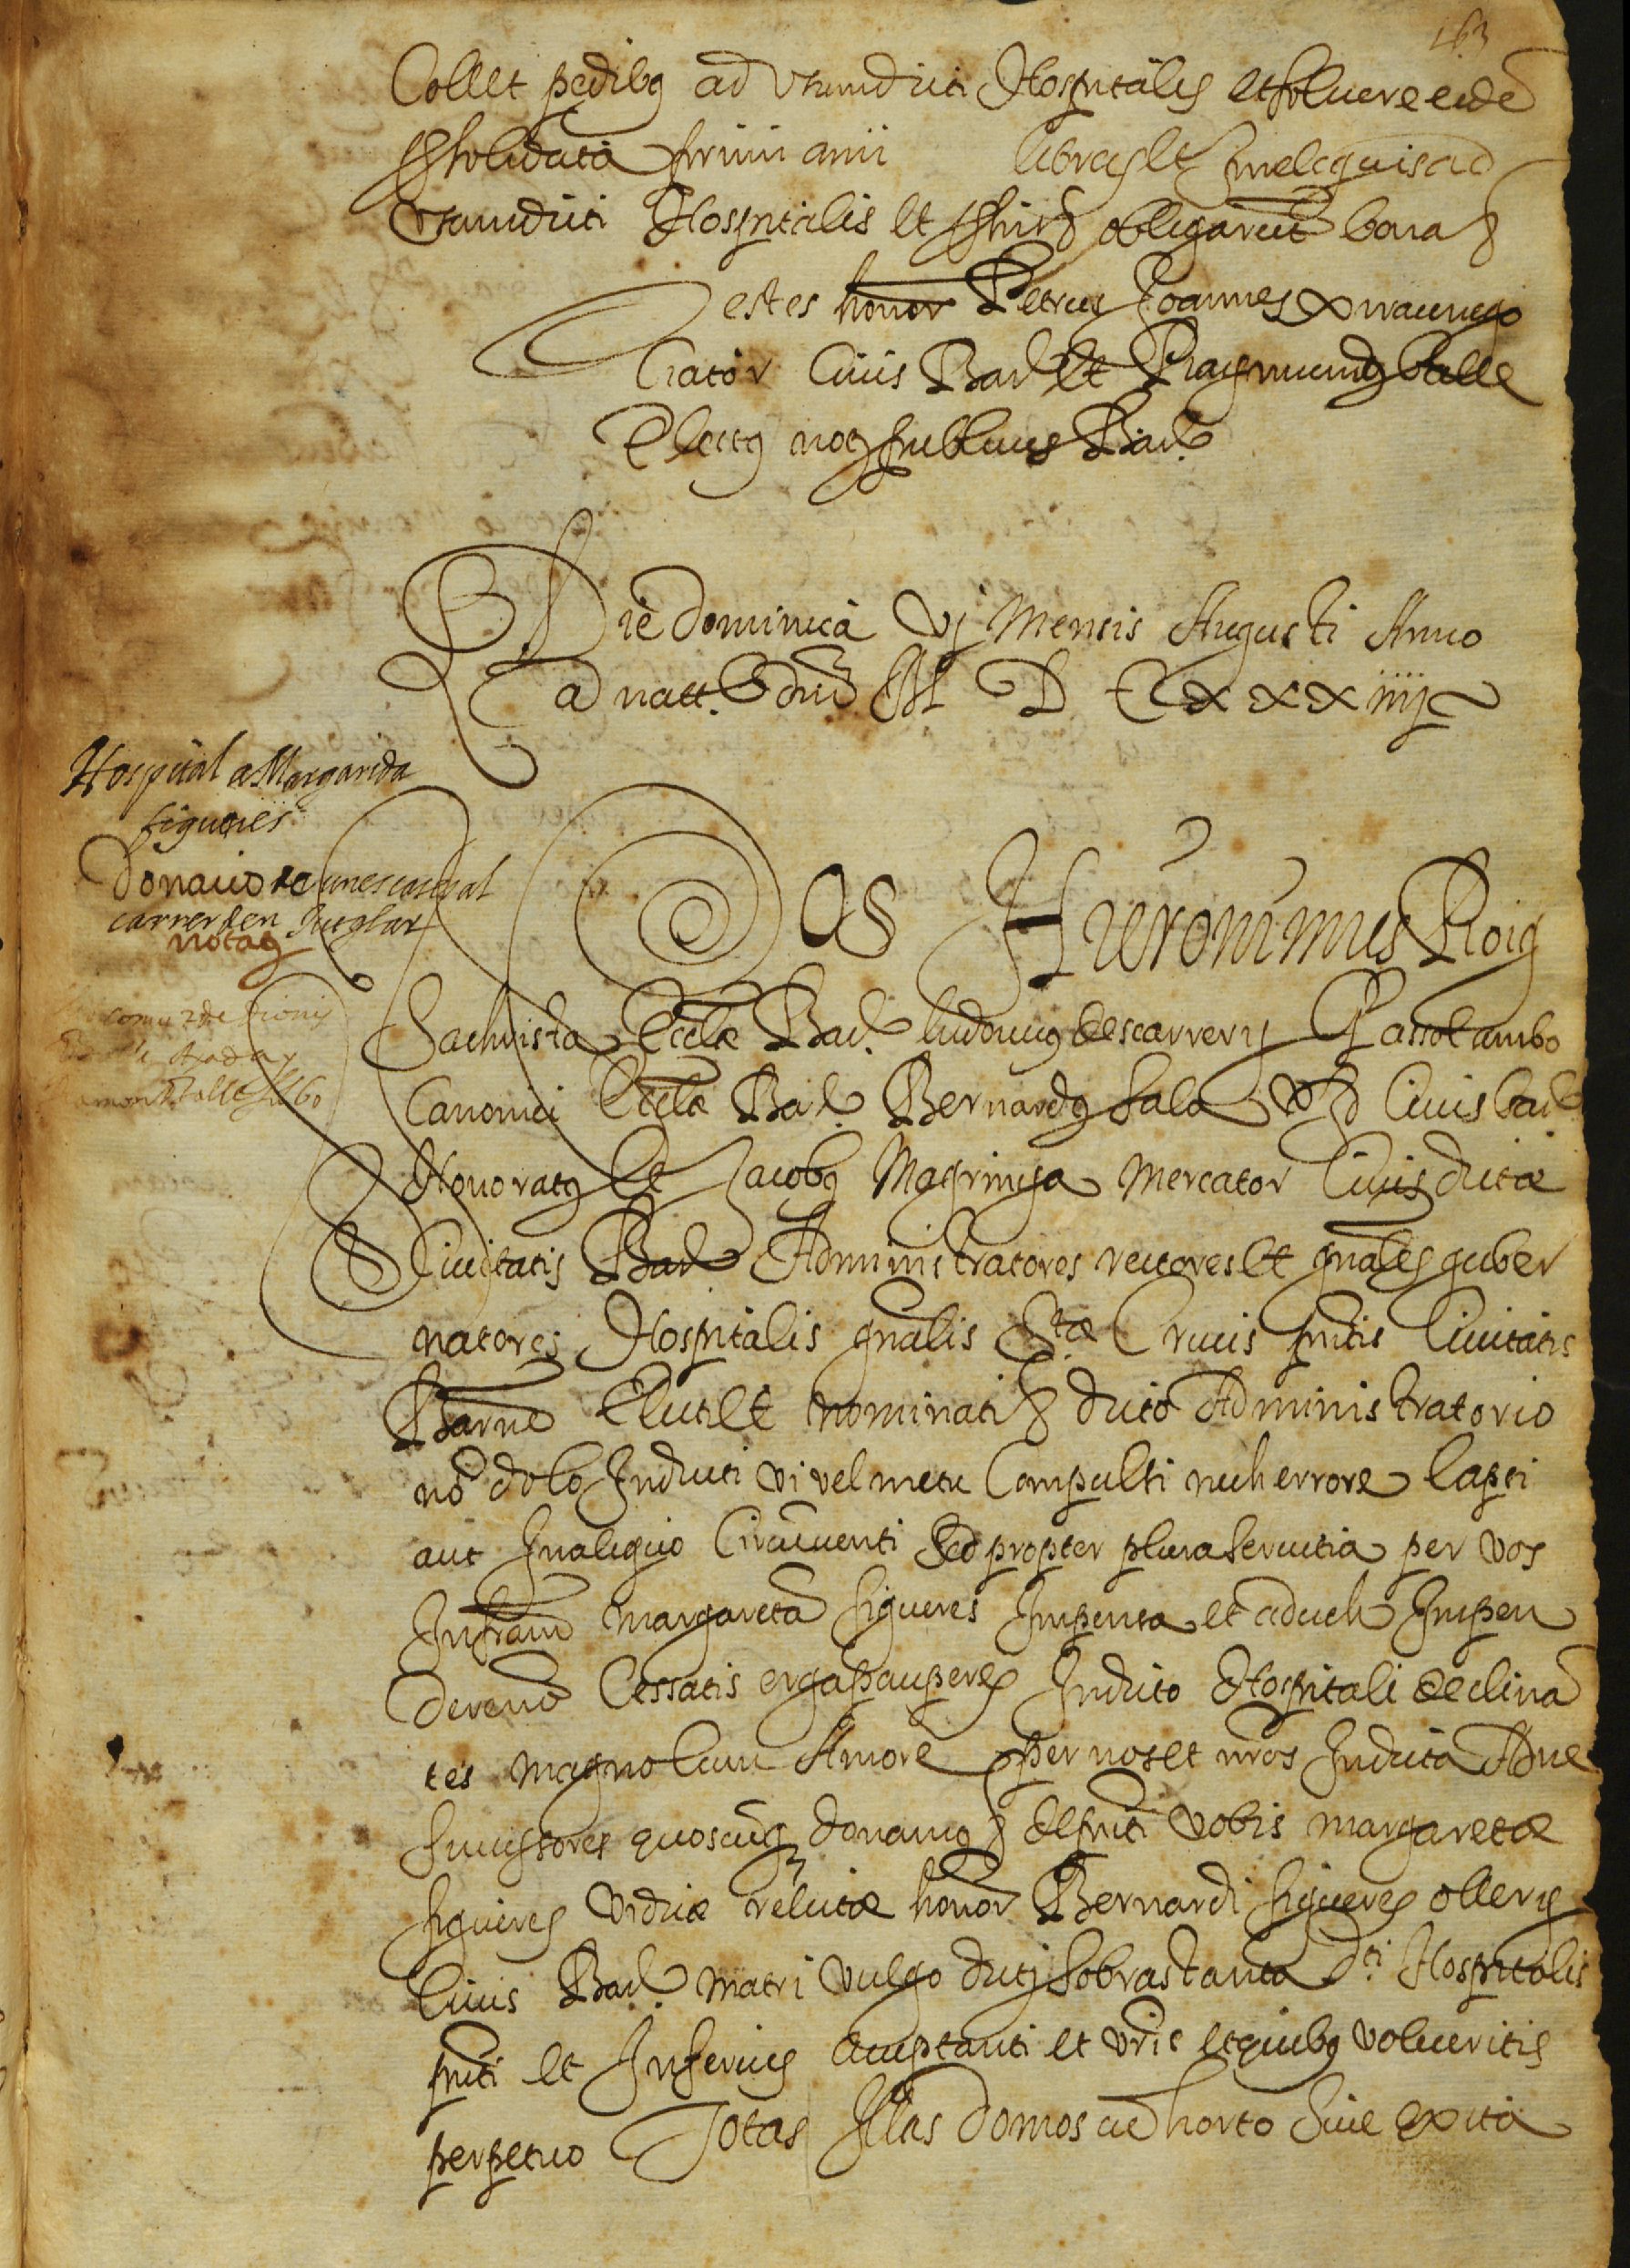 163
Collet pedibq ad usum dicti Hospitalis et solvere eide
solidata primi anni libras et
usum dicti Hospitalis et obligarut bona
Testes honor Petrus Joannes
Civis Bar et Raymundq Valle
notq publicus Bar.
Die Dominica vj Mensis Augusti Anno
a natt. Dni M D Lxxxiiij
Hospital a Margarida
figueres
Donacio de unes cases al
carrer den Juglar
notaq
Nos Hieronimus Roig
Sachrista Eccle Bar. Ludovicq Descarrery Gassol ambo
Canonici Eccle Bar. Bernardq Sala Civis Bar
Honoratq Et Jacobq Magrinya Mercator Civis dictæ
Civitatis Bar Administratores rectores Et gnales guber
natores Hospitalis gnalis Stæ Crucis pntis Civitatis
Barne Electi Et nominati dicto Administratorio
no dolo Inducti vi vel metu Compulsi nech errore lapsi
aut In aliquo Circuventi Sed propter plura Servitia per vos
Infram margareta figueres Impensa et aduch Impen
dere no Cessatis erga pauperes In dicto Hospitali declina
tes magno Cum Amore per nos et nros In dicta Adne
Successores quoscuq donamq De pnti vobis margaretæ
figueres viduæ relictæ honor Bernardi figueres ollerij
Civis Bar. matri vulgo dicti Sobrastanta Dti Hospitalis
pnti et Inferius acceptanti et vris et quibq volueritis
perpetuo Totas Illas domos cu horto Sive exita